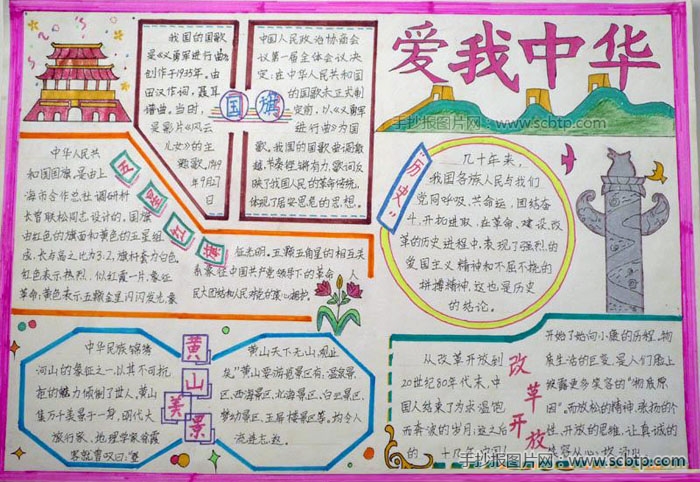 爱我中华
手抄报图片网:www.scbtp.com
我国的国歌
是《义勇军进行曲》,
创作于1935年。由
田汉作词,聂耳
谱曲。当时,
是影片《风云
儿女》的主
题歌。1949
年9月27
日
国旗
中国人民政治协商会
议第一届全体会议决
定:在中华人民共和国
的国歌未正式制
定前,以《义勇军
进行曲》为国
歌。我国的国歌曲调激
越,节奏铿锵有力,歌词反
映了我国人民的革命传统,
体现了居安思危的思想。
中华人民共
和国国旗,是由上
海市合作总社调研科
长曾联松同志设计的。国旗
由红色的旗面和黄色的五星组
成。长与高之比为3:2。旗杆套为白色。
红色表示热烈,似红霞一片,象征
革命;黄色表示五颗金星闪闪发光,象
五星红旗
征光明。五颗五角星的相互关
系象征中国共产党领导下的革命人
民大团结和人民对党的衷心拥护。
“历史”
几十年来,
我国各族人民与我们
党同呼吸、共命运,团结奋
斗、开拓进取,在革命、建设、改
革的历史进程中,表现了强烈的
爱国主义精神和不屈不挠的
拼搏精神。这也是历史
的结论。
中华民族锦绣
河山的象征之一,以其不可抗
拒的魅力倾倒了世人。黄山
集万千美景于一身,明代大
旅行家、地理学家徐霞
客就曾叹曰:“登
黄山美景
黄山天下无山,观止
矣”黄山要游览景区有:温泉景
区、西海景区、北海景区、白云景区、
梦幻景区、玉屏楼景区等。均令人
流连忘返。
从改革开放到
20世纪80年代末,中
国人结束了为求温饱
而奔波的岁月;这之后
的十几年
改革开放
开始了始向小康的历程。物
质生活的巨变,是人们脸上
披露更多笑容的“物质原
因”。而放松的精神、张扬的个
性、开放的思维,让真诚的
笑容从心
手抄报图片网:www.scbtp.com